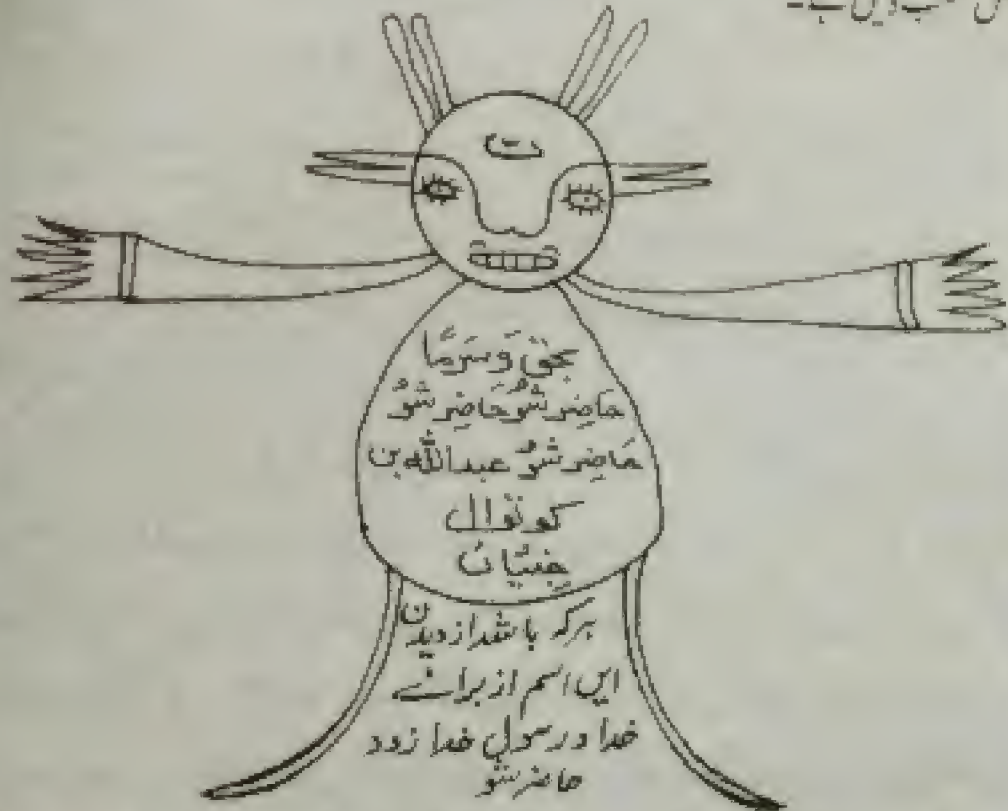 ہے۔
ت
بحق و سرما
حَاضِر شُو حَاضِر شُو
حَاضِر شُو عبداللّٰہ بن
کوتوال
جِنِّیَان
ہرکہ باشد از دیدن
ایں اسم از برائے
خدا و رسولِ خدا زود
حاضر شو